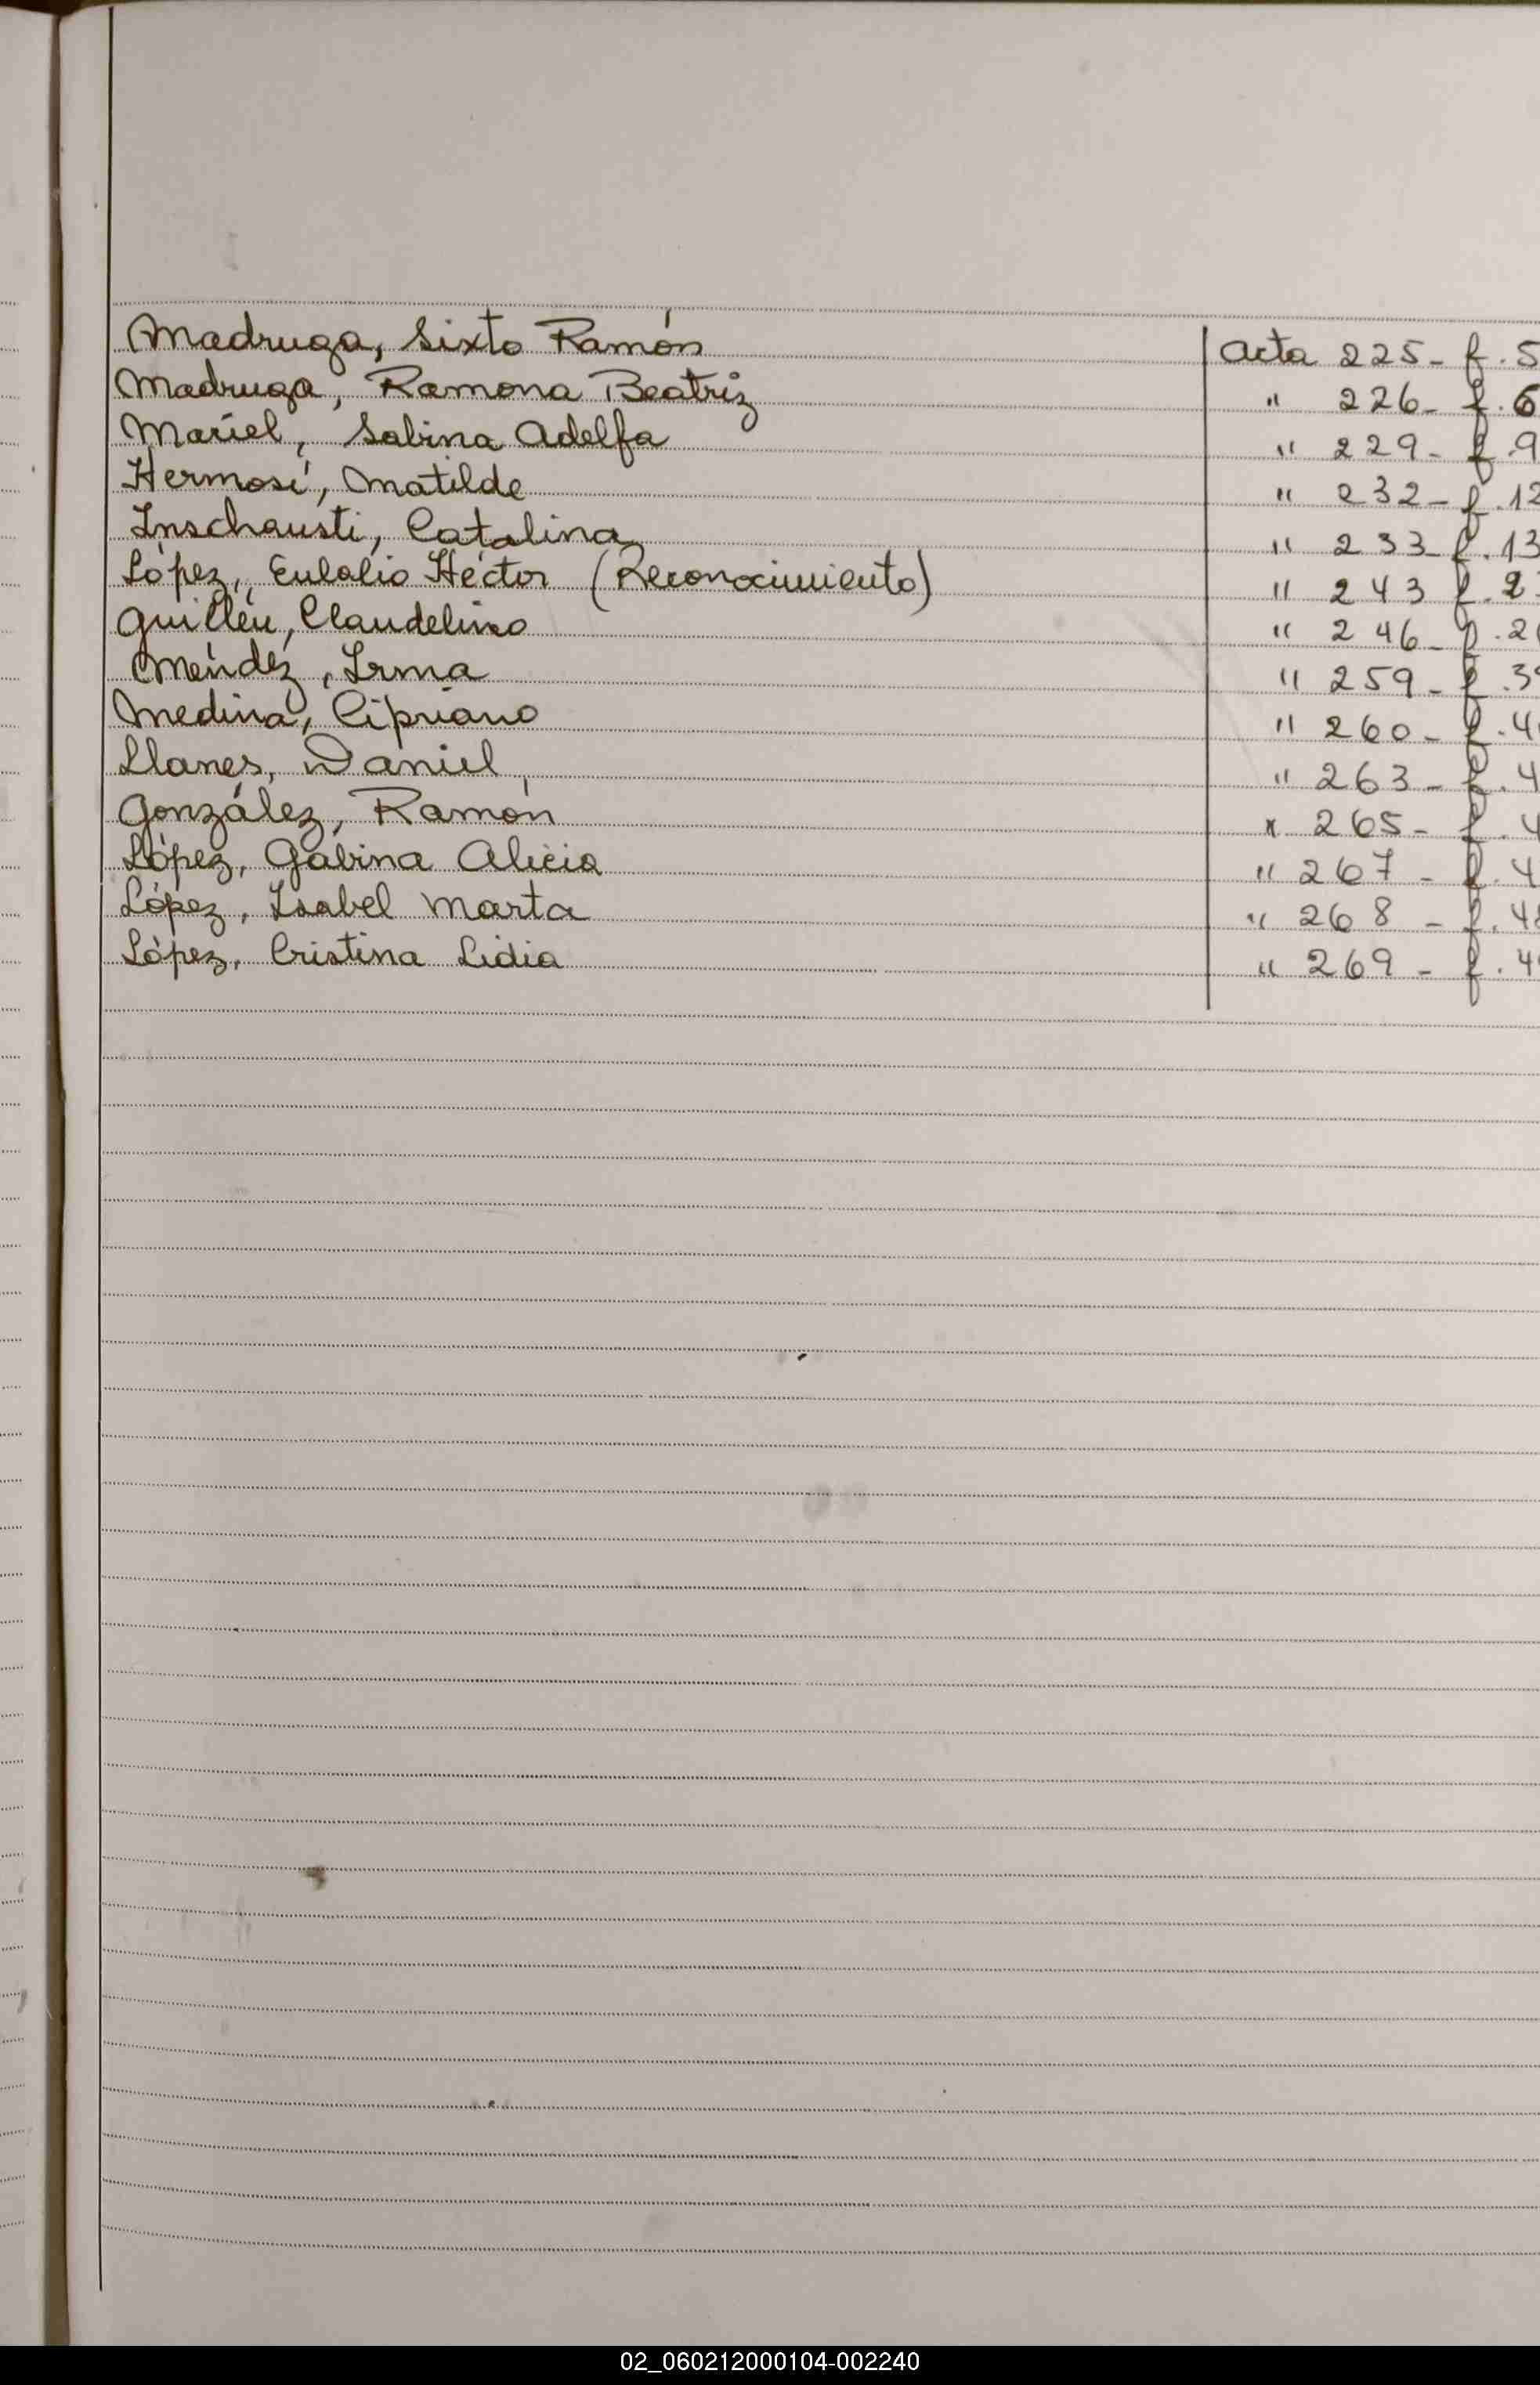 Madruga, Sixto Ramón Acta 225- f. 5
Madruga, Ramona Beatriz " 226- f. 6
Mariel, Sabina Adelfa " 229- f. 9
Hermosí, Matilde " 232- f. 12
Inschausti, Catalina " 233 f. 13
López, Eulalio Héctor (Reconocimiento) " 243 f. 2
Guillén, Claudelino " 246- f. 2
Méndez, Irma " 259- f. 3
Medina, Cipriano " 260- f. 4
Llanes, Daniel " 263- f. 4
González, Ramón " 265- f. 4
López, Gabina Alicia " 267- f. 4
López, Isabel Marta " 268- f. 48
López, Cristina Lidia " 269- f. 4
02_060212000104-002240